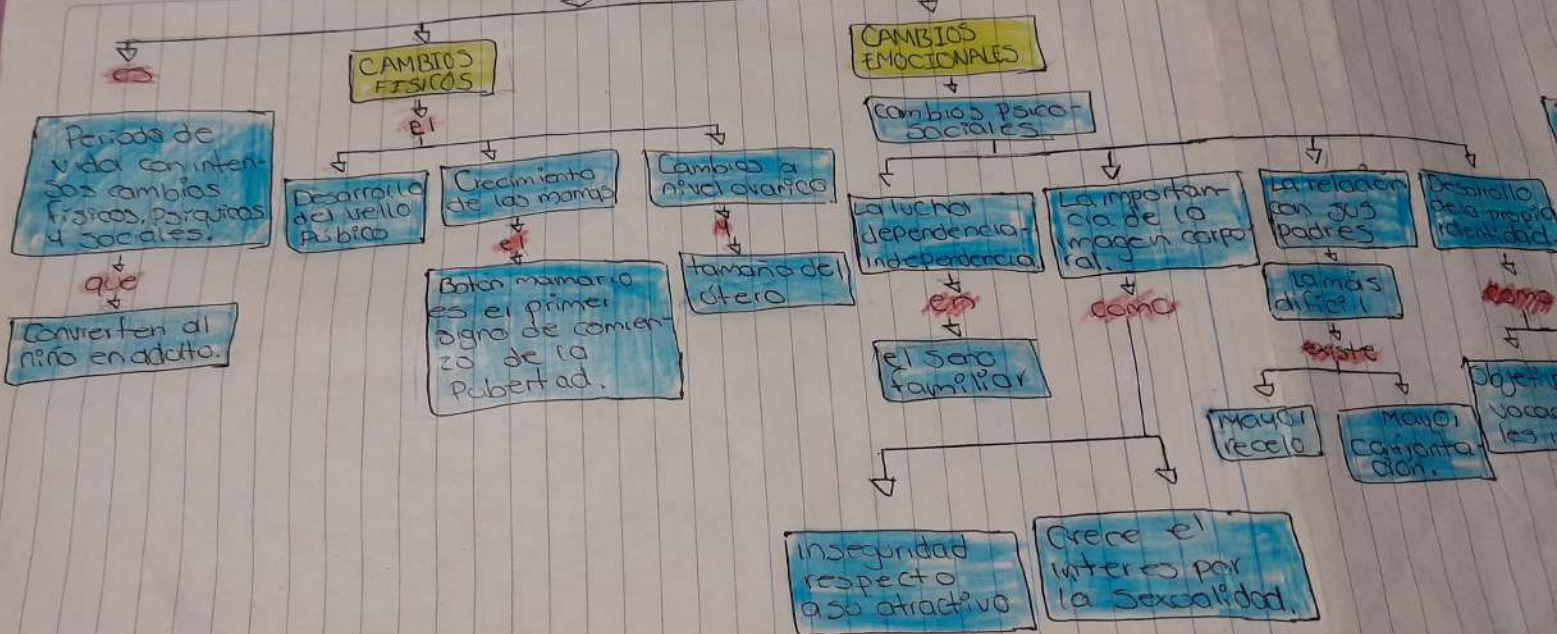 es
Periodo de
vida con inten-
sos cambios
físicos, psiquicos
y sociales.
que
Convierten al
niño en adulto.
CAMBIOS
FISICOS
el
Desarrollo
del vello
Púbico
Crecimiento
de las mamas
el
Botón mamario
es el primer
signo de comien-
zo de la
Pubertad.
Cambios a
nivel ovarico
tamaño del
útero
CAMBIOS
EMOCIONALES
cambios psico-
sociales.
La lucha
dependencia-
independencia
en
el seno
familiar
La importan-
cia de la
imagen corpo
ral.
como
inseguridad
respecto
a su atractivo
Crece el
interes por
la sexualidad.
La relación
con sus
padres
La más
dificil
existe
Mayor
recelo
Mayor
confronta-
ción.
Desarrollo
de la propia
identidad.
como